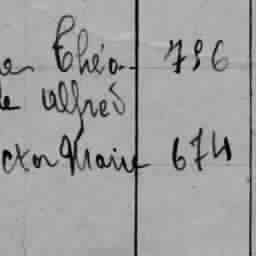 en Théo- 796
de Alfred
ctor Marie 674